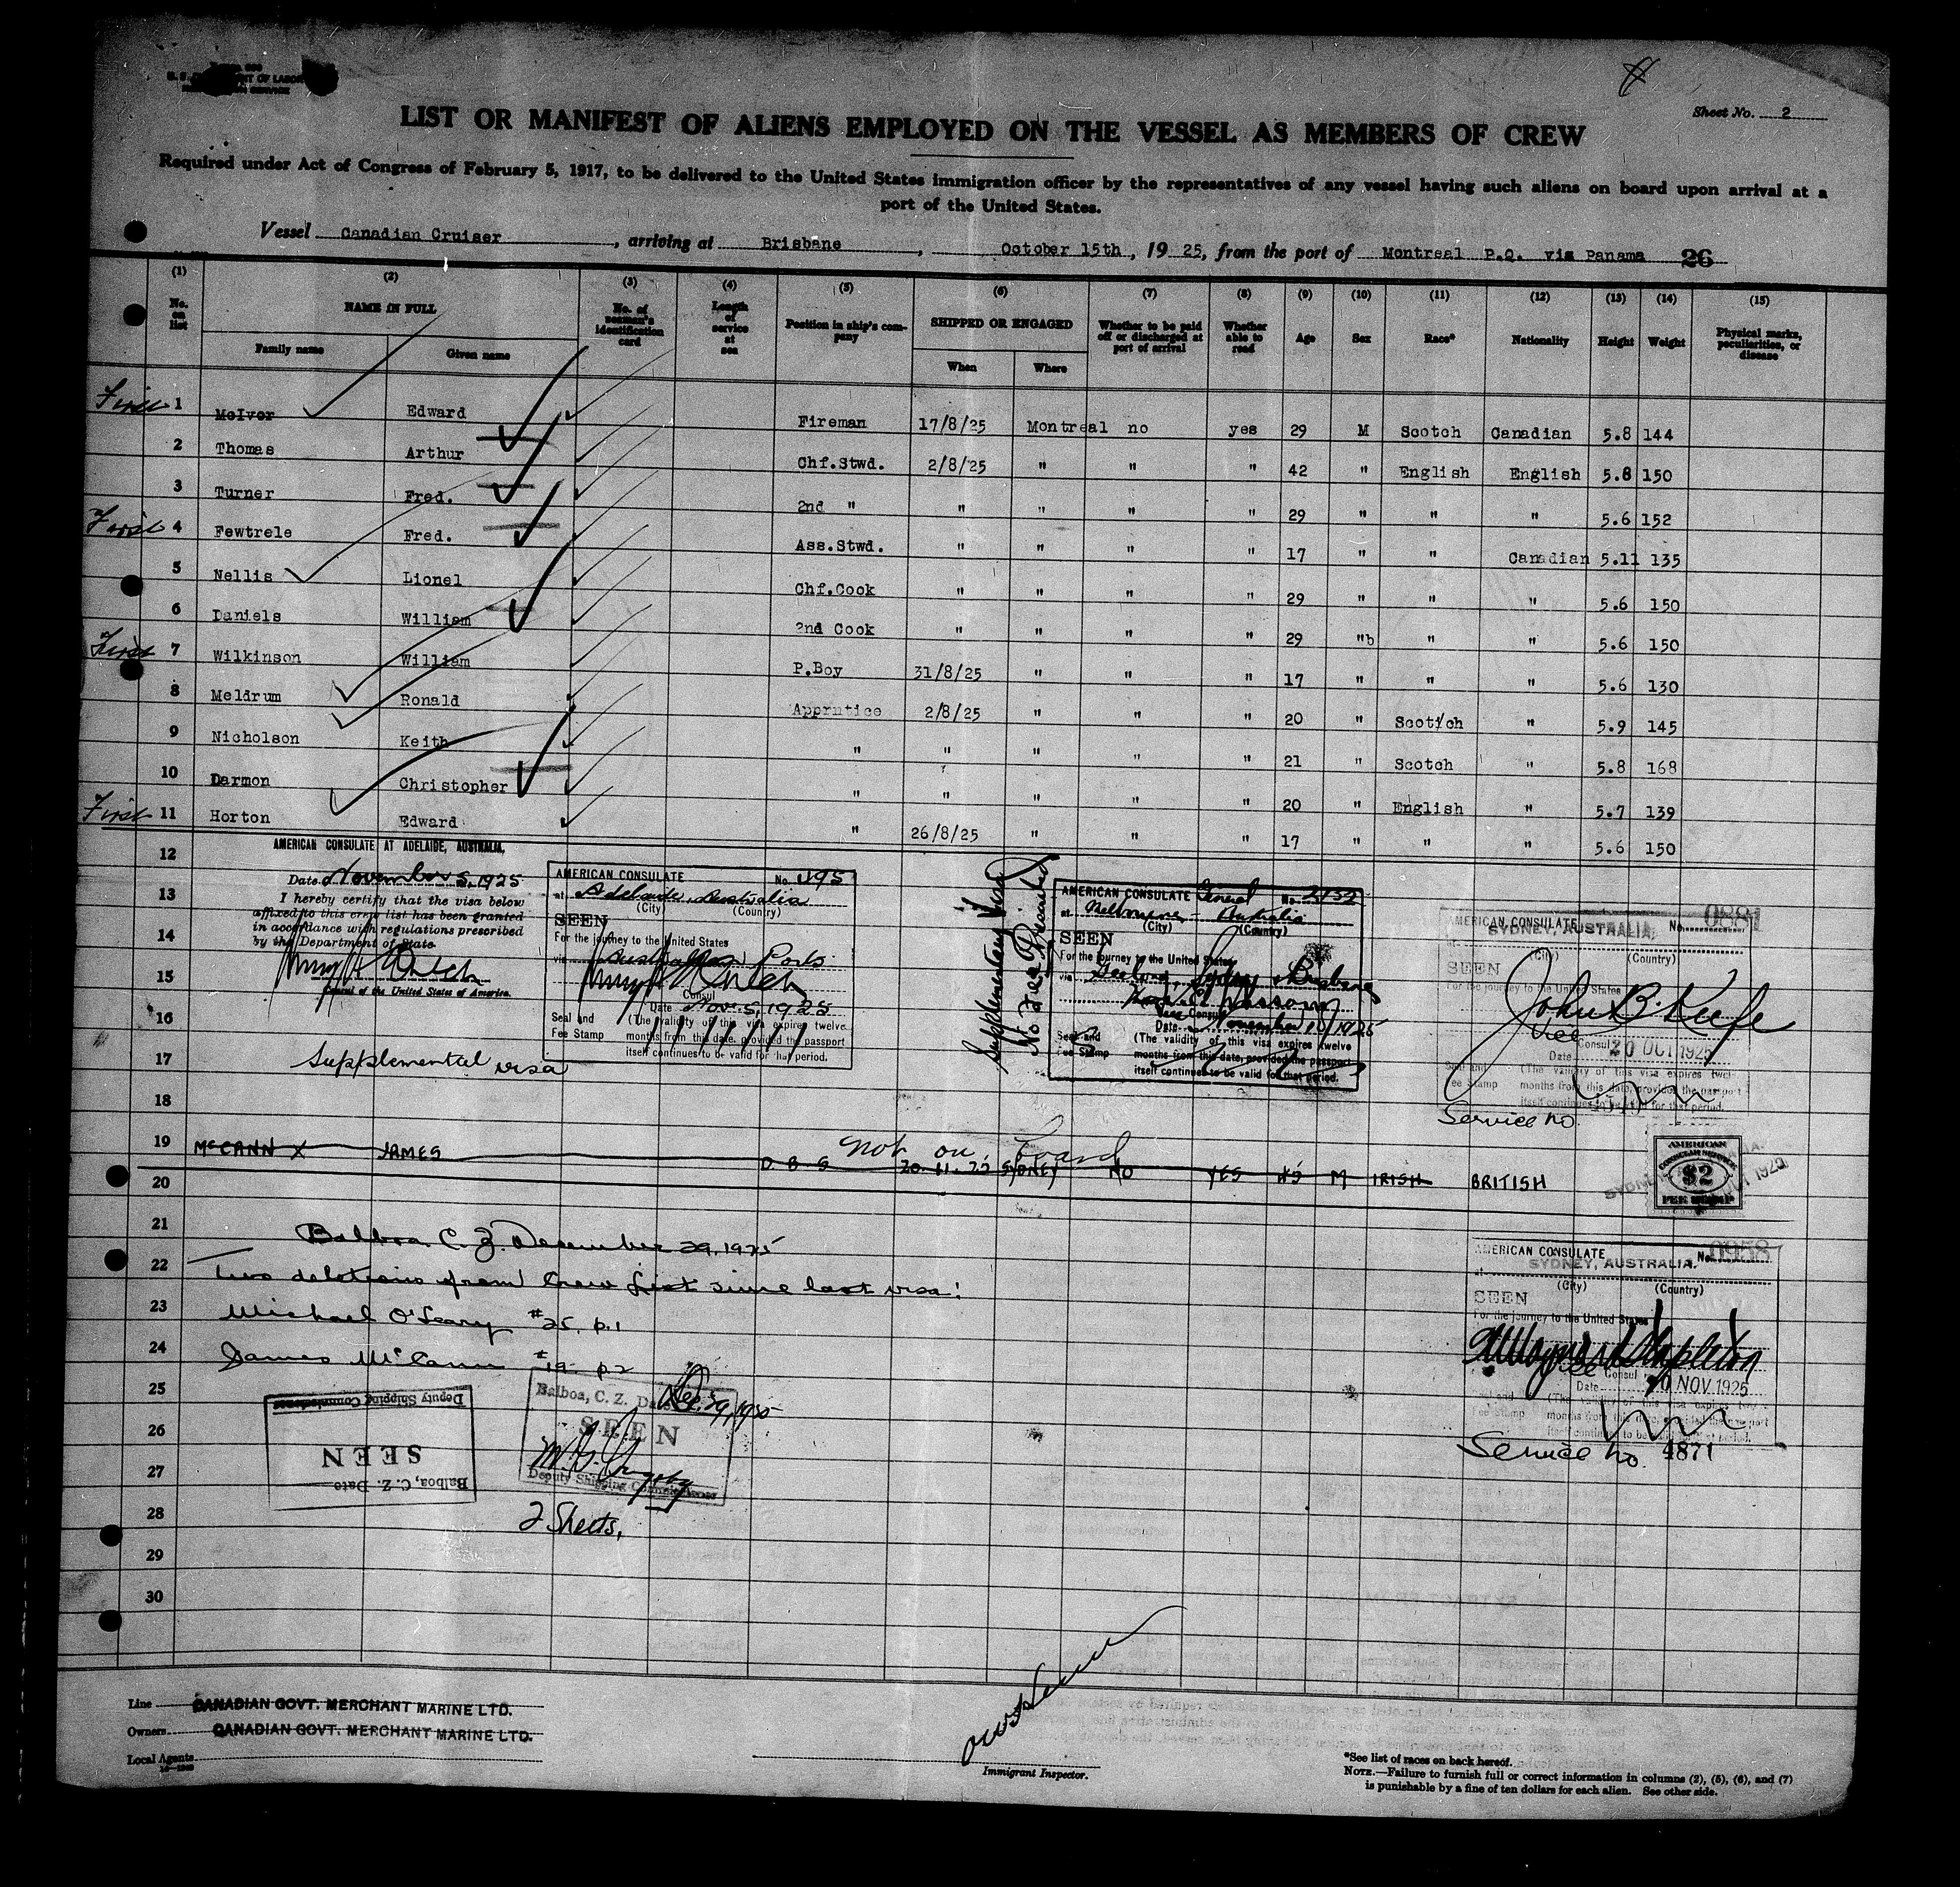 U. S. DEPARTMENT OF LABOR
Sheet No. 2
LIST OR MANIFEST OF ALIENS EMPLOYED ON THE VESSEL AS MEMBERS OF CREW
Required under Act of Congress of February 5, 1917, to be delivered to the United States immigration officer by the representatives of any vessel having such aliens on board upon arrival at a
port of the United States.
Vessel Canadian Cruiser, arriving at Brisbane, October 15th, 1925, from the port of Montreal P.Q. via Panama 26
(1) (2) (3) (4) (5) (6) (7) (8) (9) (10) (11) (12) (13) (14) (15)
No. on list NAME IN FULL No. of seaman's identification card Length of service at sea Position in ship's company SHIPPED OR ENGAGED Whether to be paid off or discharged at port of arrival Whether able to read Age Sex Race* Nationality Height Weight Physical marks, peculiarities, or disease
Family name Given name When Where
First 1 McIvor Edward Fireman 17/8/25 Montreal no yes 29 M Scotch Canadian 5.8 144
2 Thomas Arthur Chf.Stwd. 2/8/25 " " " 42 " English English 5.8 150
3 Turner Fred. 2nd " " " " " 29 " " " 5.6 152
First 4 Fewtrele Fred. Ass.Stwd. " " " " 17 " " Canadian 5.11 135
5 Nellis Lionel Chf.Cook " " " " 29 " " " 5.6 150
6 Daniels William 2nd Cook " " " " 29 "b " " 5.6 150
First 7 Wilkinson William P.Boy 31/8/25 " " " 17 " " " 5.6 130
8 Meldrum Ronald Apprntice 2/8/25 " " " 20 " Scot/ch " 5.9 145
9 Nicholson Keith " " " " " 21 " Scotch " 5.8 168
10 Darmon Christopher " " " " " 20 " English " 5.7 139
First 11 Horton Edward " 26/8/25 " " " 17 " " " 5.6 150
12
13
14
15
16
17
18
AMERICAN CONSULATE AT ADELAIDE, AUSTRALIA.
Date November 5, 1925
I hereby certify that the visa below
affixed to this crew list has been granted
in accordance with regulations prescribed
by the Department of State.
Consul of the United States of America.
Supplemental visa
AMERICAN CONSULATE No. 495
at Adelaide, Australia
(City) (Country)
SEEN
For the journey to the United States
via Australian Ports
Consul
Date Nov. 5, 1925
Seal and
Fee Stamp
(The validity of this visa expires twelve
months from this date, provided the passport
itself continues to be valid for that period.
Supplementary Visa
No Fee Prescribed
AMERICAN CONSULATE General No. 2132
at Melbourne - Australia
(City) (Country)
SEEN
For the journey to the United States
via Geelong, Sydney & Brisbane
Vice Consul
Date November 10/1925
Seal and
Fee Stamp
(The validity of this visa expires twelve
months from this date, provided the passport
itself continues to be valid for that period.
AMERICAN CONSULATE No. 0881
SYDNEY, AUSTRALIA.
(City) (Country)
SEEN
For the journey to the United States
John B. Keefe
Vice Consul
Date 20 OCT 1925
Seal and
Fee Stamp
(The validity of this visa expires twelve
months from this date, provided the passport
itself continues to be valid for that period.
Service No.
19 McCANN X JAMES D B S 20.11.25 SYDNEY NO YES 45 M IRISH BRITISH
Not on board
AMERICAN
CONSULAR SERVICE
$2
FEE STAMP
20
21 Balboa, C. Z. December 29, 1925
22 Two deletions from Crew List since last visa:
23 Michael O'Leary #25, p.1
24 James McCann #19 p 2
25
26
27
28
29
30
Deputy Shipping Commissioner
SEEN
Balboa, C.Z. Date
Balboa, C. Z. Date Dec. 29, 1925
SEEN
Deputy Shipping Commissioner
2 Sheets,
AMERICAN CONSULATE No.
SYDNEY, AUSTRALIA.
(City) (Country)
SEEN
For the journey to the United States
Vice Consul
Date 20 NOV 1925
Seal and
Fee Stamp
(The validity of this visa expires twelve
months from this date, provided the passport
itself continues to be valid for that period.
Service No. 4871
Line CANADIAN GOVT. MERCHANT MARINE LTD.
Owners CANADIAN GOVT. MERCHANT MARINE LTD.
Local Agents
Immigrant Inspector.
*See list of races on back hereof.
NOTE.—Failure to furnish full or correct information in columns (2), (5), (6), and (7)
is punishable by a fine of ten dollars for each alien. See other side.